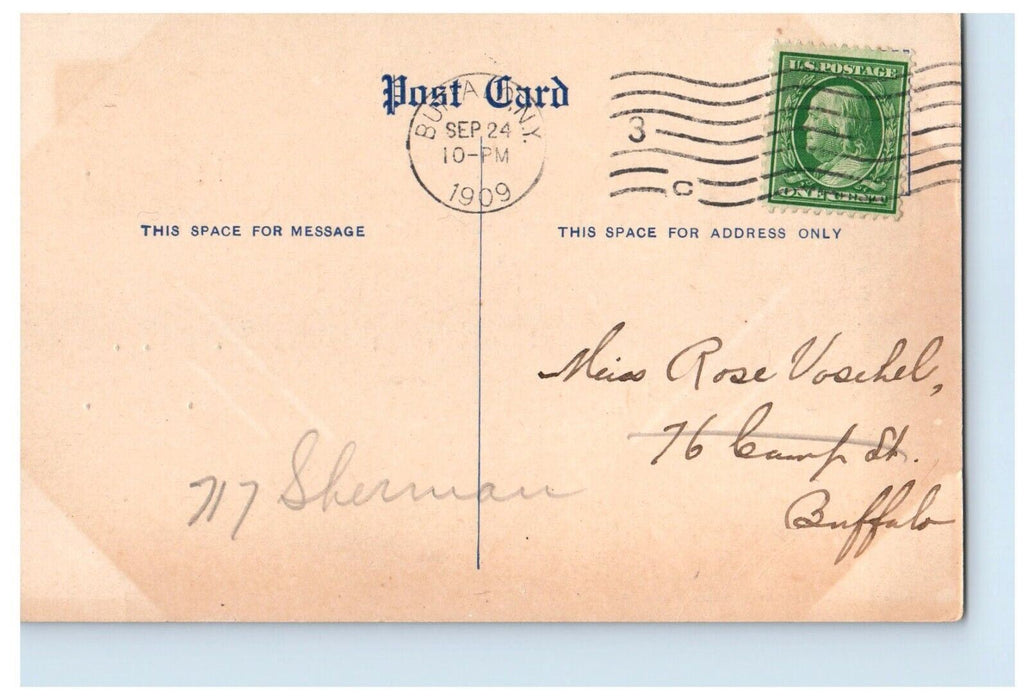 Post Card
BUFFALO, N.Y.
SEP 24
10-PM
1909
3
C
U.S. POSTAGE
ONE CENT
THIS SPACE FOR MESSAGE
THIS SPACE FOR ADDRESS ONLY
Miss Rose Voschel,
76 Camp St.
Buffalo
717 Sherman